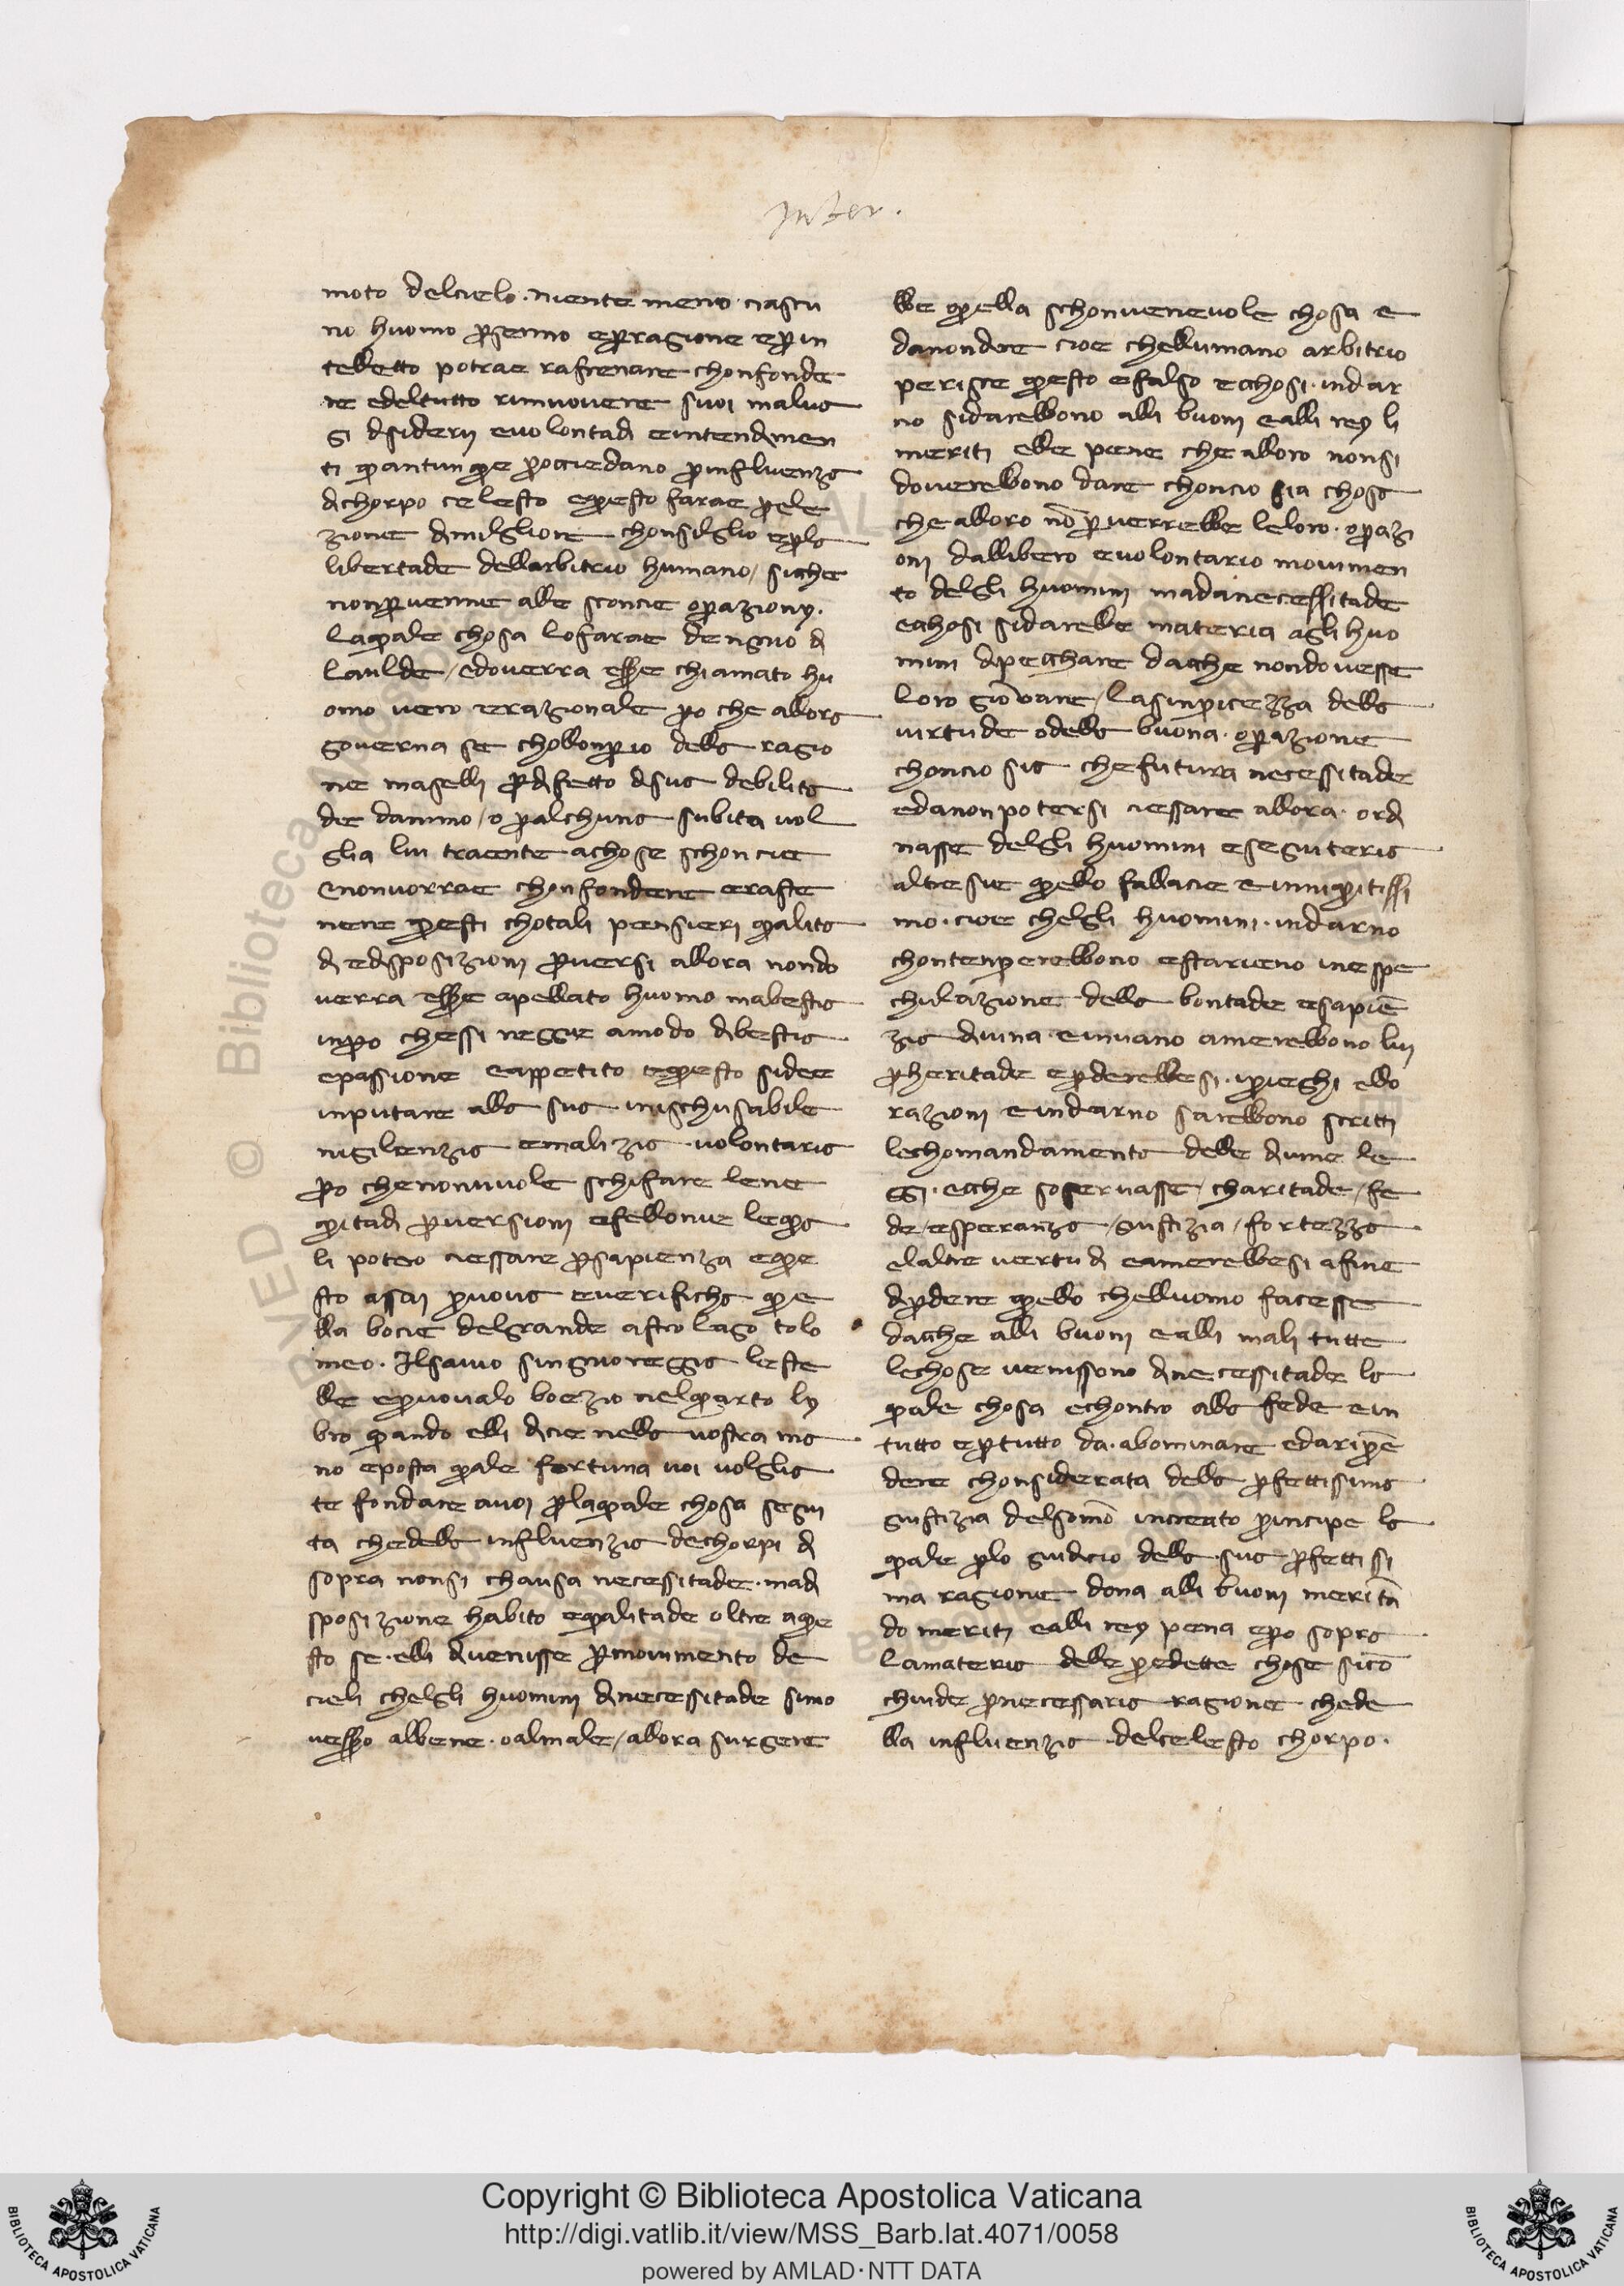 Inter.
moto delcielo. niente meno ciascu
no huomo p̲senno ep̲ragione ep̲in
telletto potrae rafrenare chonfonde
re edeltutto rimuovere suoi malva
gi disiderij evolontadi eintendimen
ti quantunque p̲occiedano p̲influenza
dichorpo celesto equesto farae p̲ele
zione dimilgliore chonsilglio ep̲la
libertade dellarbitrio humano / siche
nonp̲venne alle sconcie op̲aziony.
laquale chosa lofarae dengnio di
laulde / edoverra essere chiamato hu
omo vero erazionale p̲o che allora
governa se chollonp̲io della ragio
ne maselli p̲difetto disua debilita
de danimo / o p̲alchuna subita vol
glia lui traente achose schoncie
enonvorrae chonfondere erafre
nere questi chotali pensieri qualita
di edisposizioni p̲versi allora nondo
verra essere apellato huomo mabestia
inp̲o chessi regge amodo dibestia
epassione eappetito equesto sidee
inputare alla sua inischusabile
nigilienzia emalizia volontaria
p̲o chenonvuole schifare lene
quitadi p̲versioni efellonie lequa
li poteo ciessare p̲sapienza eque
sto assai p̲uova everificha que
lla bocie delgrande astrolago tolo
meo. Ilsavio singnioreggia leste
lle ep̲uovalo boezio nelquarto ly
bro quando elli dicie nella vostra ma
no eposta quale fortuna voi volglia
te fondare avoi p̲laquale chosa segui
ta chedella influenzia dechorpi di
sopra nonsi chausa necessitade. madi
sposizione habito equalitade oltre aque
sto se. elli divenisse p̲movimento de
cieli chelgli huomini dinecessitade simo
vessero albene. oalmale / allora surgere
bbe quella schonvenevole chosa e
danondire cioe chellumano arbitrio
perisce questo efalso ecchosi. indar
no sidarebbono alli buoni ealli rey li
meriti elle pene che alloro nonsi
doverebbono dare choncio sia chosa
che alloro nō p̲verrebbe leloro. op̲azi
oni dallibero evolontario movimen
to delgli huomini madanecessitade
echosi sidarebbe materia agli huo
mini dipecchare dacche nondovesse
loro giōvare / lasinp̲icezza della
virtude odella buona. op̲azione
choncio sia chefutura necessitade
edanonpotersi ciessare allora. ordi
nasse delgli huomini eseguiteria
altresie quello fallacie einniquitissi
mo. cioe chelgli huomini. indarno
chontenp̲erebbono estarieno inespe
chulazione della bontade esapiē
zia divina einvano amerebbono lui
p̲heritade ep̲derebbesi. ip̲ieghi ello
razioni eindarno sarebbono scritti
lechomandamenta delle divine le
ggi. ecche soservasse / charitade / fe
de / esperanza / giustizia / fortezza
elaltre vertudi eamerebbesi afine
dip̲dere quello chelluomo facesse
dacche alli buoni ealli mali tutte
lechose venissono dinecessitade la
quale chosa echontro alla fede ein
tutto ep̲tutto da. abominare edarip̲ē
dere chonsiderata della p̲fettissima
giustizia delsomō increato p̲incipe la
quale p̲lo giudicio della sua p̲fettissi
ma ragione dona alli buoni meritā
do meriti ealli rey pena ep̲o sopra
lamateria delle p̲edette chose sicō
chiude p̲necessaria ragione chede
lla influenzia delcelesto chorpo.
Copyright © Biblioteca Apostolica Vaticana
http://digi.vatlib.it/view/MSS_Barb.lat.4071/0058
powered by AMLAD·NTT DATA